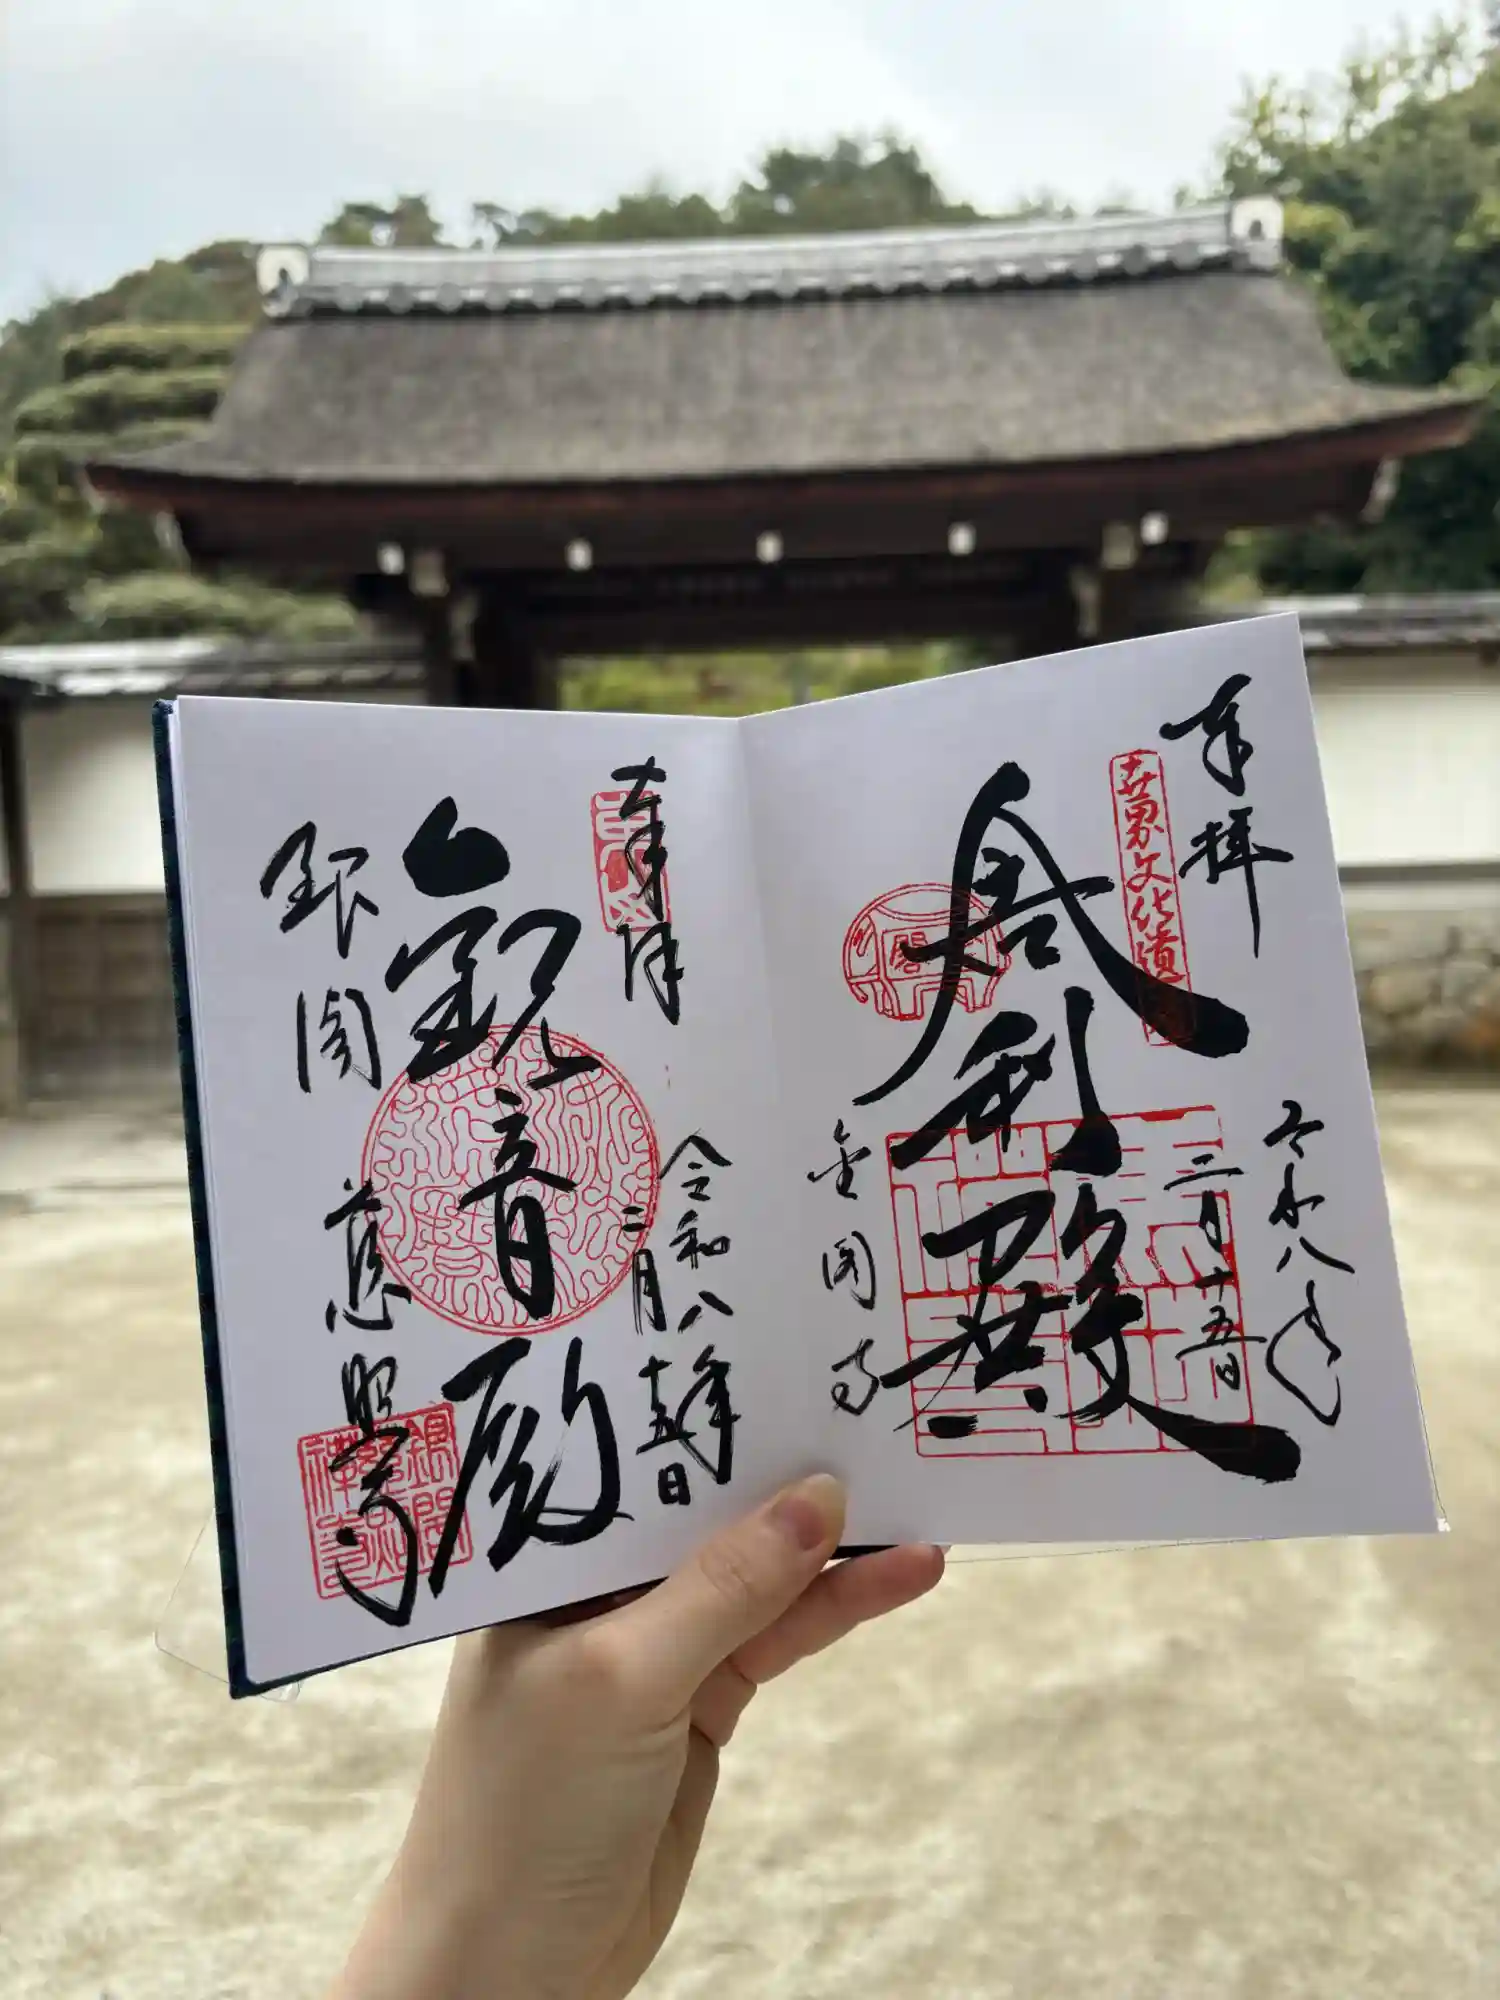 奉拝
世界文化遺産
舎利殿
令和八年
二月十五日
金閣寺
奉拝
観音殿
令和八年
二月十五日
銀閣
慈照寺
銀閣慈照禅寺